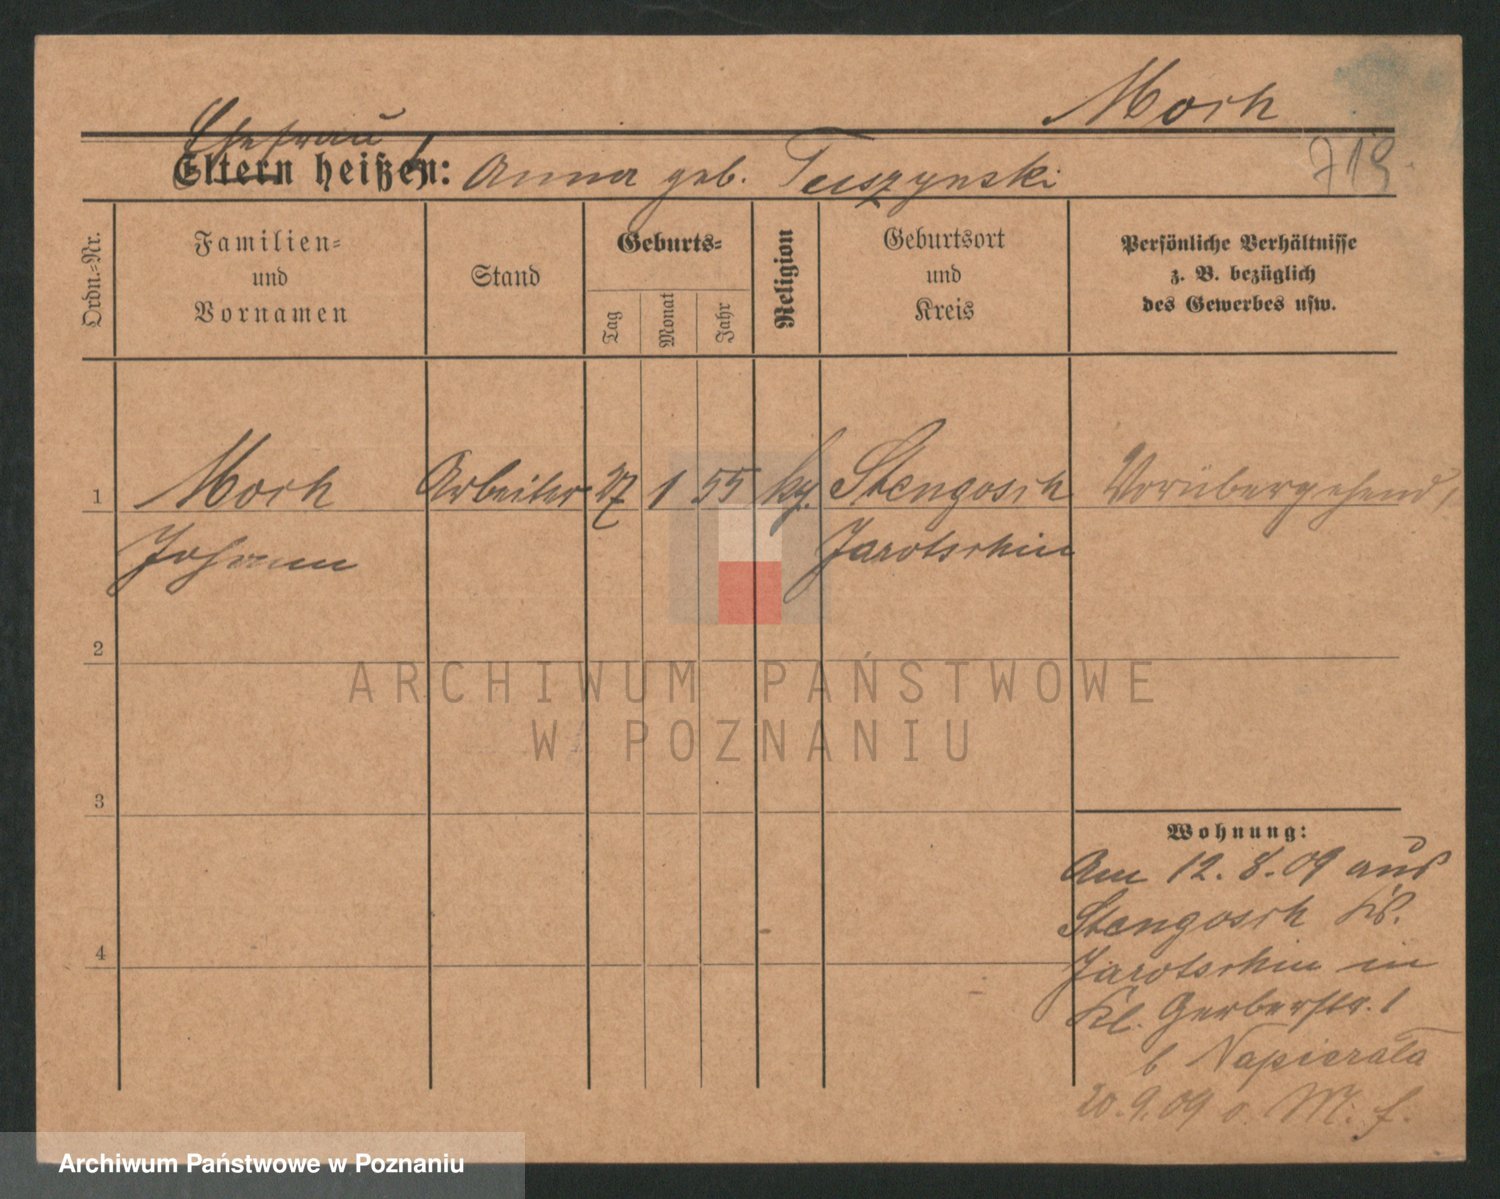 Moch
Ehefrau
Eltern heißen: Anna geb. Tuszynski
713
Ordn.-Nr.
Familien-
und
Vornamen
Stand
Geburts-
Tag
Monat
Jahr
Religion
Geburtsort
und
Kreis
Persönliche Verhältnisse
z. B. bezüglich
des Gewerbes usw.
1 Moch Arbeiter 27 1 55 kg. Stengosch Vorübergehend,
Johann Jarotschin
2
ARCHIWUM PAŃSTWOWE
W POZNANIU
3
Wohnung:
Am 12. 8. 09 aus
Stengosch Krs.
4
Jarotschin in
Kl. Gerberstr. 1
b Napierała
20. 9. 09 o. M. f.
Archiwum Państwowe w Poznaniu